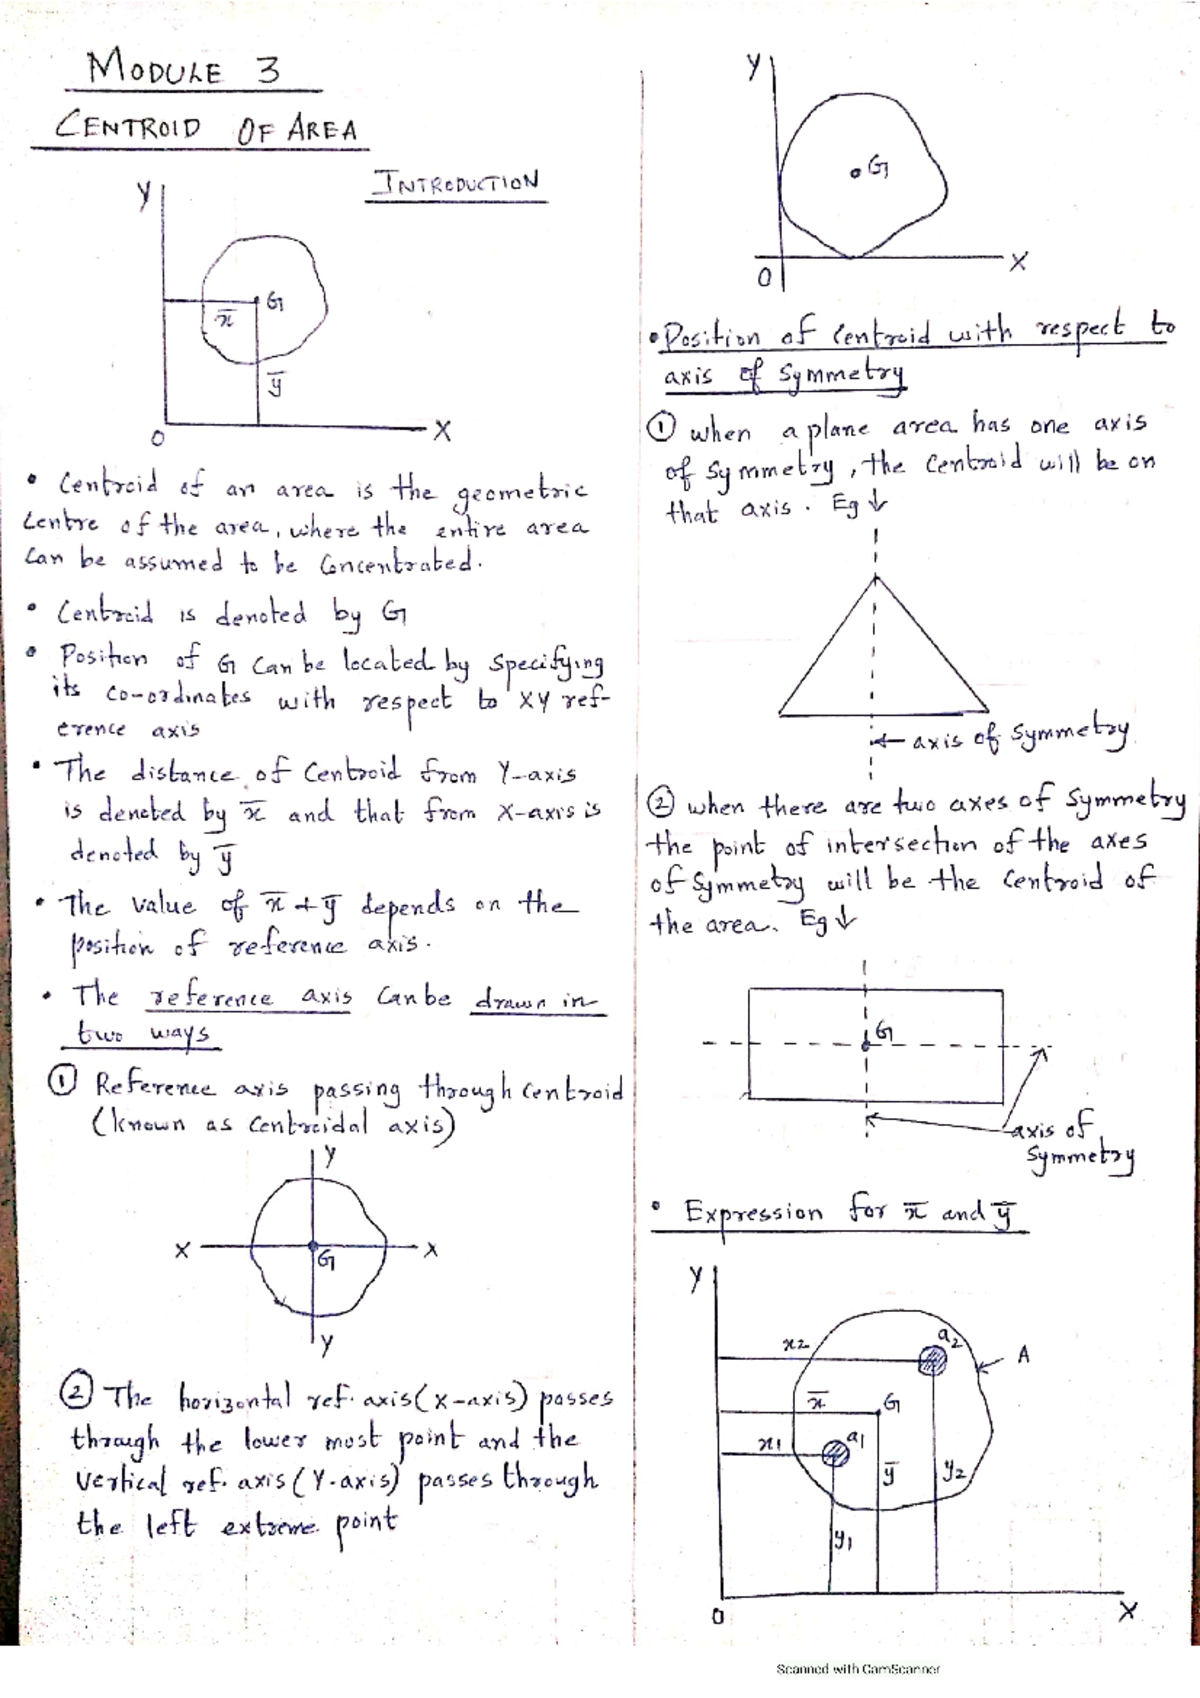 MODULE 3
CENTROID OF AREA
INTRODUCTION
Y
G
x̄
ȳ
O
X
• Centroid of an area is the geometric
Centre of the area, where the entire area
Can be assumed to be Concentrated.
• Centroid is denoted by G
• Position of G Can be located by Specifying
its co-ordinates with respect to XY ref-
erence axis
• The distance of Centroid from Y-axis
is denoted by x̄ and that from X-axis is
denoted by ȳ
• The value of x̄ + ȳ depends on the
position of reference axis.
• The reference axis Can be drawn in
two ways
① Reference axis passing through Centroid
(known as Centroidal axis)
Y
X
G
X
Y
② The horizontal ref. axis (X-axis) passes
through the lower most point and the
Vertical ref. axis (Y-axis) passes through
the left extreme point
Y
G
O
X
• Position of Centroid with respect to
axis of Symmetry
① when a plane area has one axis
of Symmetry, the Centroid will be on
that axis. Eg ↓
← axis of Symmetry
② when there are two axes of Symmetry
the point of intersection of the axes
of Symmetry will be the Centroid of
the area. Eg ↓
G
axis of
Symmetry
• Expression for x̄ and ȳ
Y
x2
a2
A
x̄
G
x1
a1
ȳ
y2
y1
O
X
Scanned with CamScanner